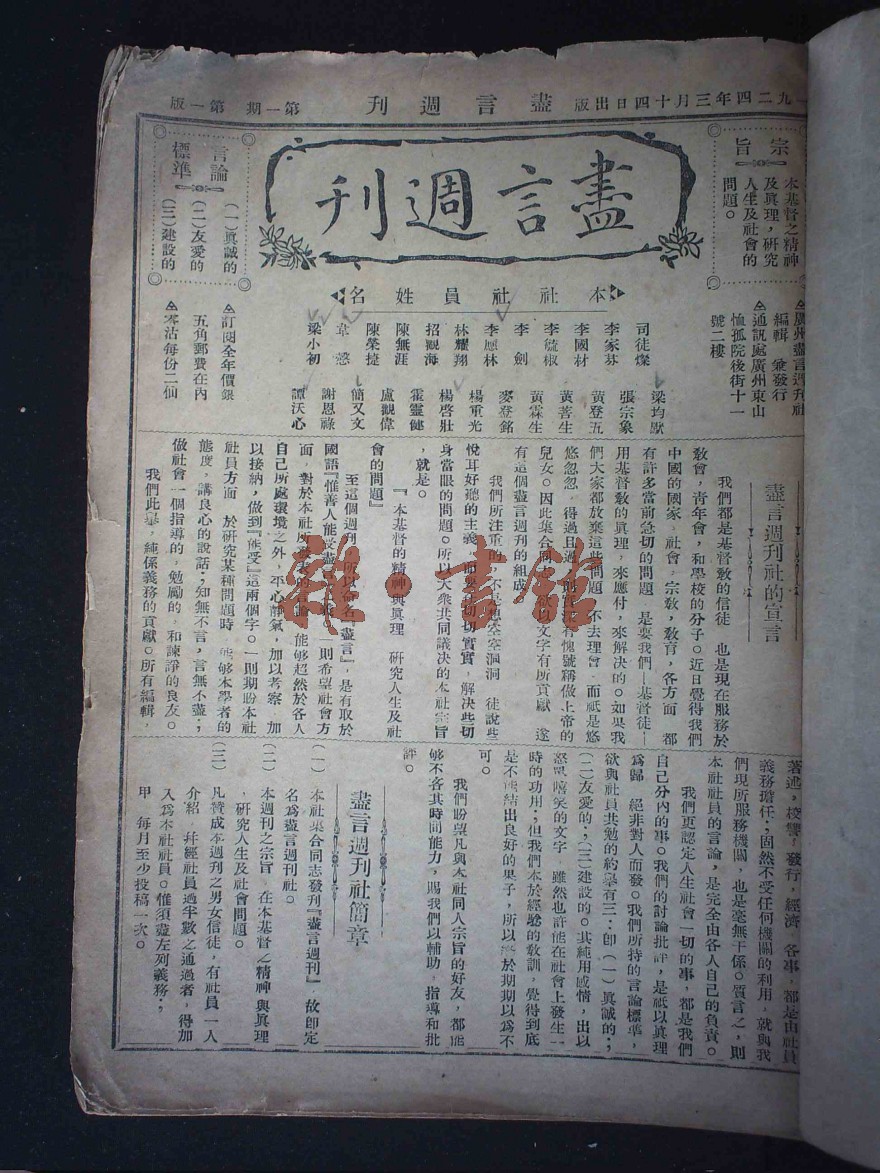 一九二四年三月十四日出版
盡言週刊
第一期
第一版
宗旨
本基督之精神
及真理，研究
人生及社會的
問題。
盡言週刊
言論標準
（一）真誠的
（二）友愛的
（三）建設的
廣州盡言週刊社
編輯 兼發行
通訊處廣州東山
恤孤院後街十一
號二樓
本社社員姓名
司徒燦
李家芬
李國材
李毓椒
李劍
李應林
林耀翔
招觀海
陳無涯
陳榮捷
韋愨
梁小初
梁均默
張宗象
黃登五
黃菩生
黃霖生
麥登銘
楊重光
楊啓壯
霍靈健
盧觀偉
簡又文
謝恩祿
譚沃心
訂閱全年價銀
五角郵費在內
零沽每份二仙
盡言週刊社的宣言
我們都是基督教的信徒 也是現在服務於
教會，青年會，和學校的分子。近日覺得我們
中國的國家，社會，宗教，教育，各方面 都
有許多當前急切的問題 是要我們—基督徒—
用基督教的真理，來應付，來解決的。如果我
們大家都放棄這些問題 不去理會 而祇是悠
悠忽忽，得過且過 愧號稱做上帝的
兒女。因此集合同 欲以文字有所貢獻 遂
有這個盡言週刊的組成
我們所注重的，不是 空空洞洞 徒說些
悅耳好聽的主義 而要切切實實，解決些切
身當眼的問題。所以大衆共同議決的本社宗旨
，就是。
『本基督的精神與真理 研究人生及社
會的問題』
至這個週刊所以命名『盡言』，是有取於
國語『惟善人能受盡言』 一則希望社會方
面，對於本社所發表的言論 能够超然於各人
自己所處環境之外，平心靜氣，加以考察 加
以接納，做到『能受』這兩個字。一則期盼本社
社員方面 於研究某種問題時，能够本學者的
態度，講良心的說話；知無不言，言無不盡；
做社會一個指導的，勉勵的，和諫諍的良友。
我們此舉，純係義務的貢獻。所有編輯，
著述，校讐，發行，經濟，各事，都是由社員
義務擔任；固然不受任何機關的利用，就與我
們現所服務機關，也是毫無干係。質言之，則
本社社員的言論，是完全由各人自己的負責。
我們更認定人生社會一切的事，都是我們
自己分內的事。我們的討論批評，是祇以真理
爲歸 絕非對人而發。我們所持的言論標準，
欲與社員共勉的約舉有三：卽（一）真誠的；
（二）友愛的；（三）建設的。其純用感情，出以
怒罵嘻笑的文字 雖然也許能在社會上發生一
時的功用；但我們本於經驗的教訓，覺得到底
是不能結出良好的果子，所以 於期期以爲不
可。
我們盼望凡與本社同人宗旨的好友，都能
够不吝其時間能力，賜我們以輔助，指導和批
評。
盡言週刊社簡章
（一）本社集合同志發刊『盡言週刊』，故卽定
名爲盡言週刊社。
（二）本週刊之宗旨，在本基督之精神與真理
，研究人生及社會問題。
（三）凡贊成本週刊之男女信徒，有社員一人
介紹，幷經社員過半數之通過者，得加
入爲本社社員。惟須盡左列義務；
甲 每月至少投稿一次。
雜·書館